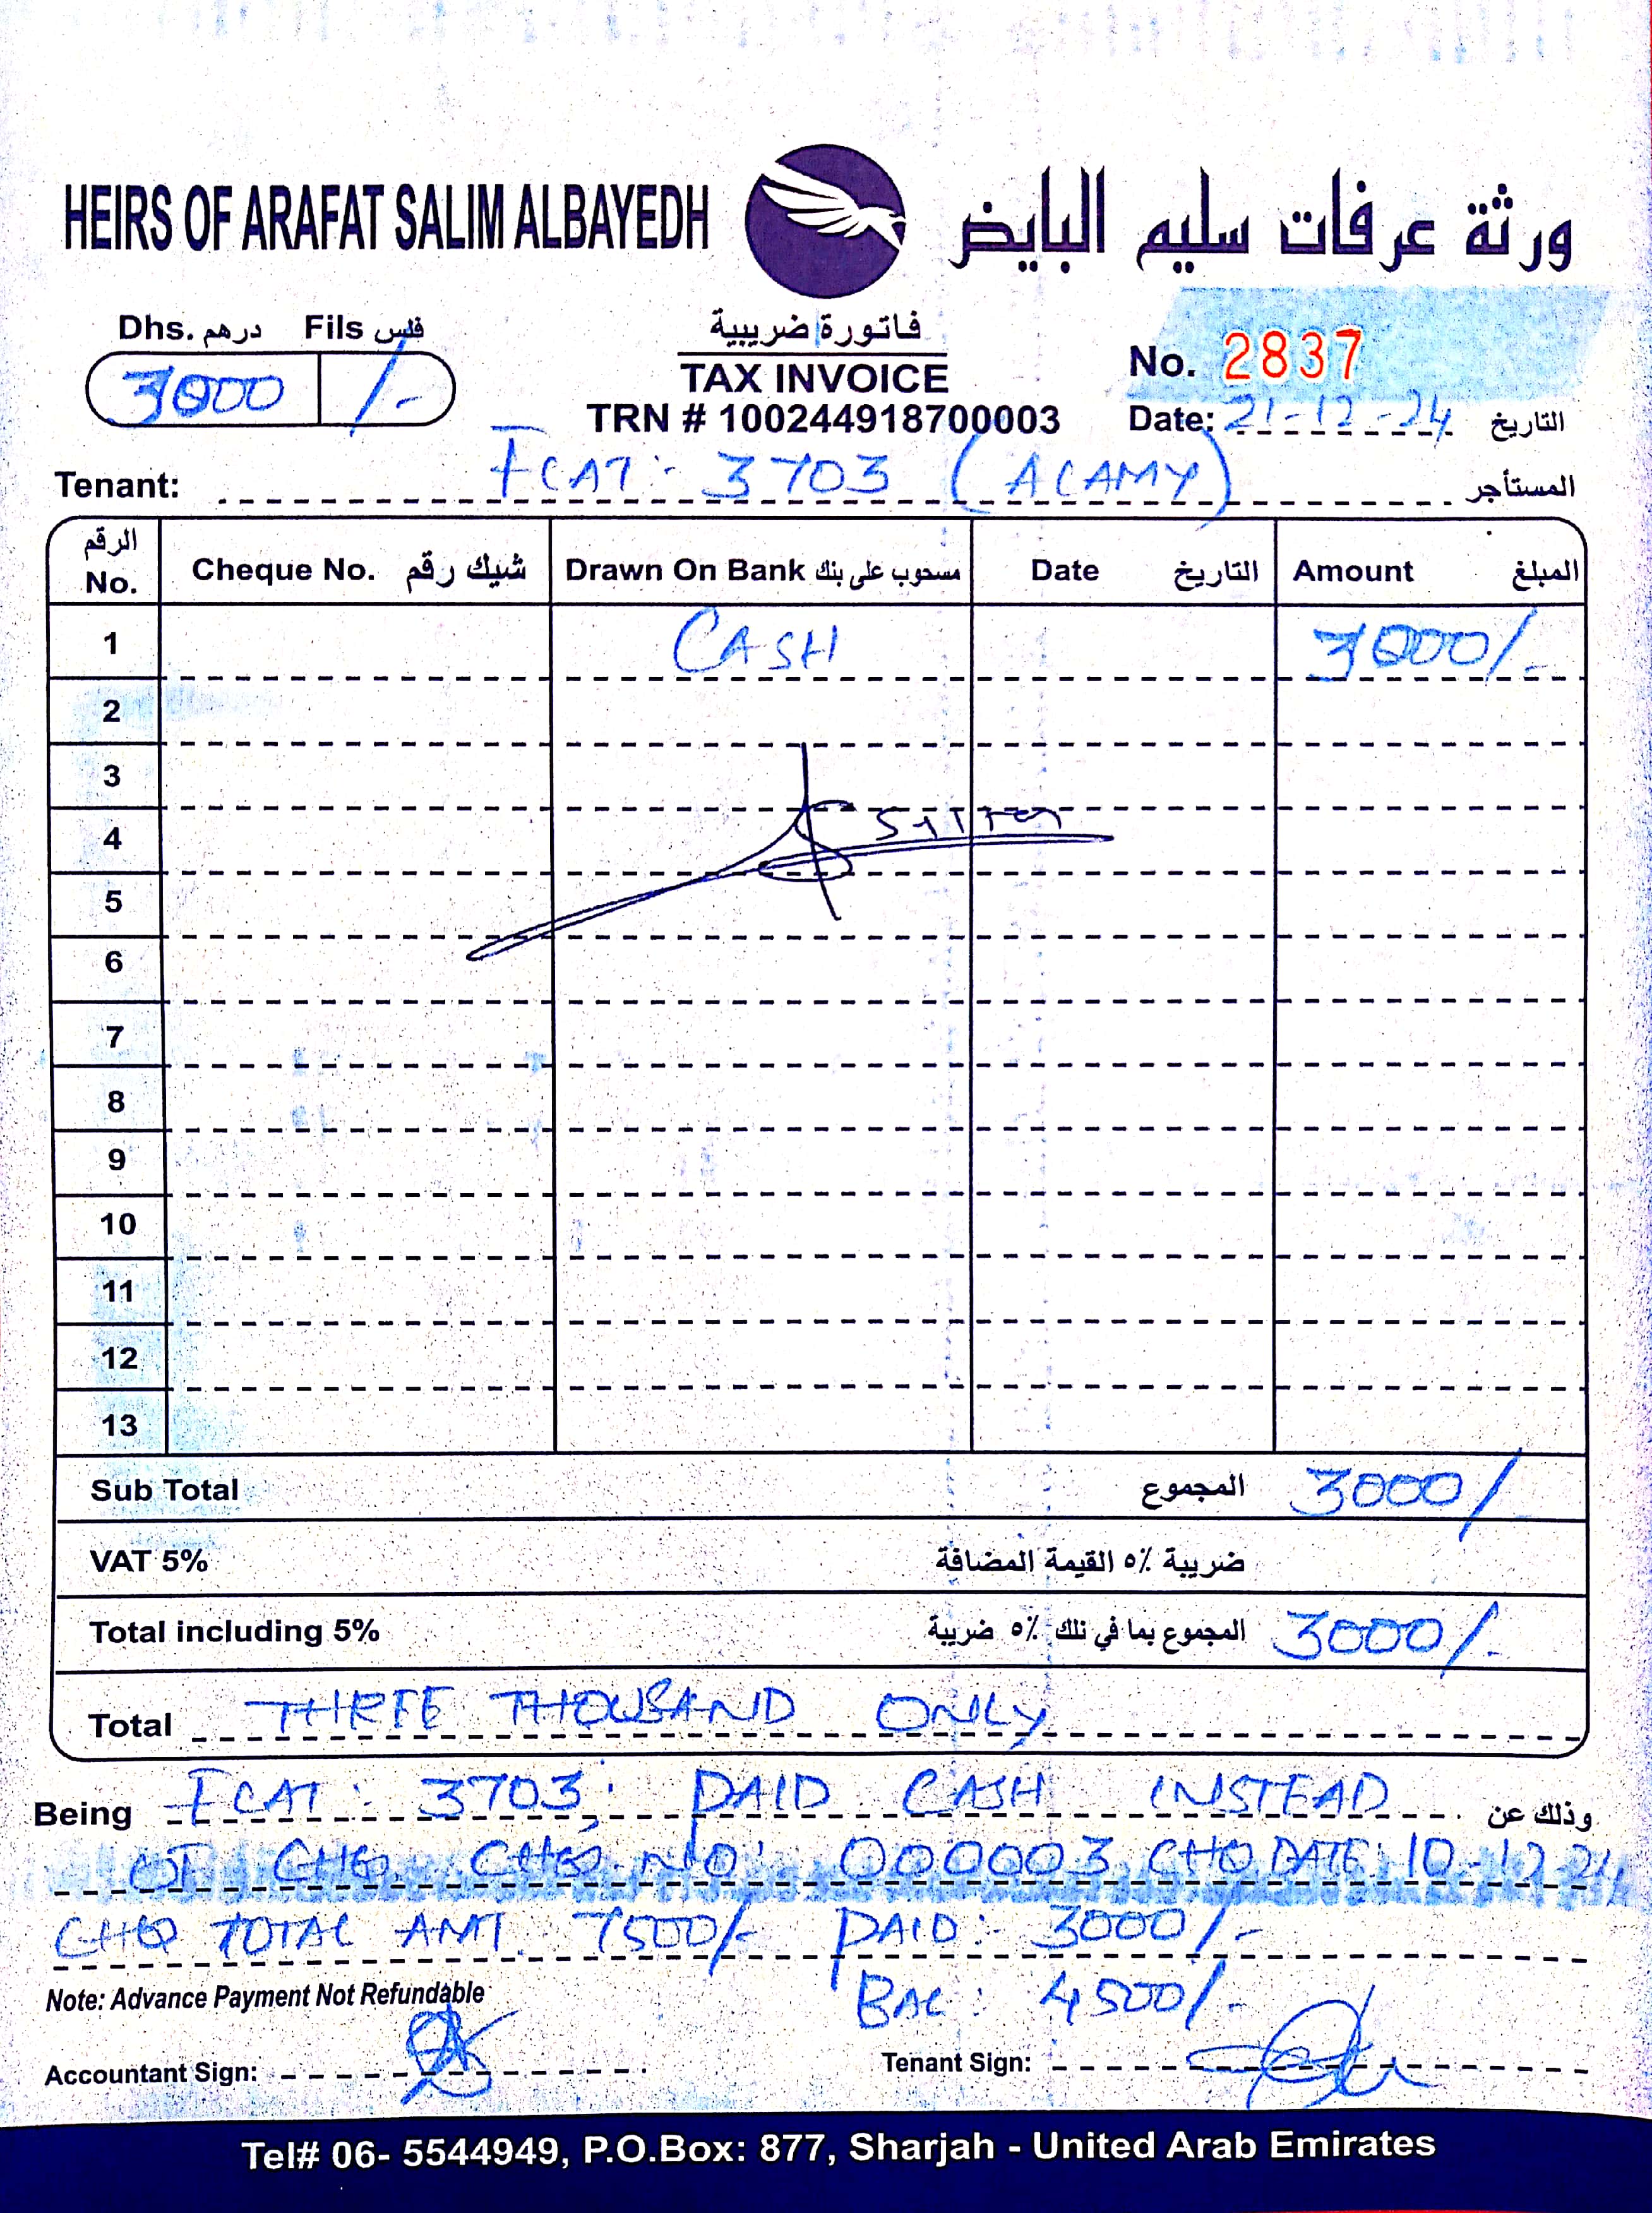 HEIRS OF ARAFAT SALIM ALBAYEDH ورثة عرفات سليم البايض
Dhs. درهم Fils فلس
3000 /-
فاتورة ضريبية
TAX INVOICE
TRN # 100244918700003
No. 2837
Date: 21-12-24 التاريخ
Tenant: FCAT: 3703 (ACAMY) المستأجر
الرقم No. Cheque No. شيك رقم Drawn On Bank مسحوب على بنك Date التاريخ Amount المبلغ
1 CASH 3000/-
2
3
4
5
6
7
8
9
10
11
12
13
Sub Total المجموع 3000/-
VAT 5% ضريبة ٥٪ القيمة المضافة
Total including 5% المجموع بما في تلك ٥٪ ضريبة 3000/-
Total THREE THOUSAND ONLY
Being FCAT: 3703: PAID CASH INSTEAD وذلك عن
OF CHQ CHQ NO: 000003 CHQ DATE: 10-12-24
CHQ TOTAL AMT. 7500/- PAID:- 3000/-
BAL: 4500/-
Note: Advance Payment Not Refundable
Accountant Sign: Tenant Sign:
Tel# 06- 5544949, P.O.Box: 877, Sharjah - United Arab Emirates